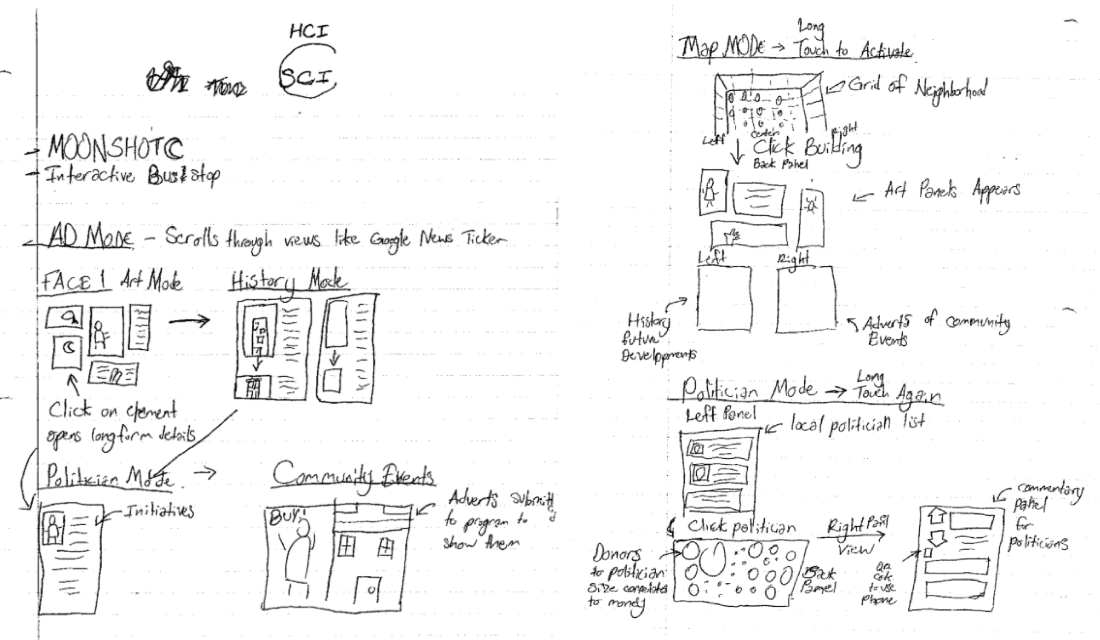 HCI
SCI
MOONSHOT
Interactive Bus stop
AD MODE - Scrolls through views like Google News Ticker
FACE 1 Art Mode
History Mode
Click on element
opens longform details
Politician Mode
Initiatives
Community Events
BUY!
Adverts submitted
to program to
show them
Map MODE → Long
Touch to Activate
Grid of Neighborhood
Left
Center
Right
Click Building
Back Panel
Art Panels Appears
Left
Right
History
future
Developments
Adverts of community
Events
Politician Mode → Long
Touch Again
Left Panel
local politician list
Click politician
Right Panel
View
Donors
to politician
size correlates
to money
Back
Panel
commentary
panel
for
politicians
QR
code
to use
phone